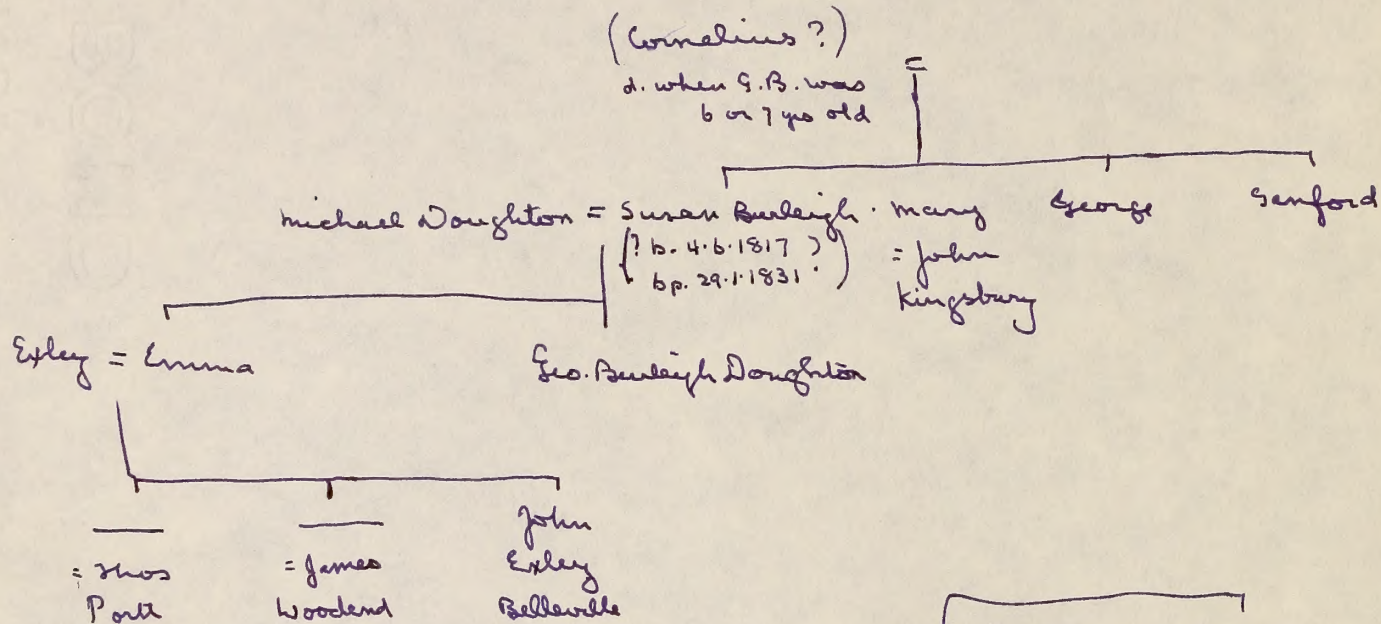 (Cornelius?)
=
d. when G.B. was
6 or 7 yrs old
Michael Doughton = Susan Burleigh · Mary George Sanford
(? b. 4.6.1817 ?) = John
bp. 29.1.1831 Kingsbury
Exley = Emma Geo. Burleigh Doughton
John
= Thos = James Exley
Woodend Belleville